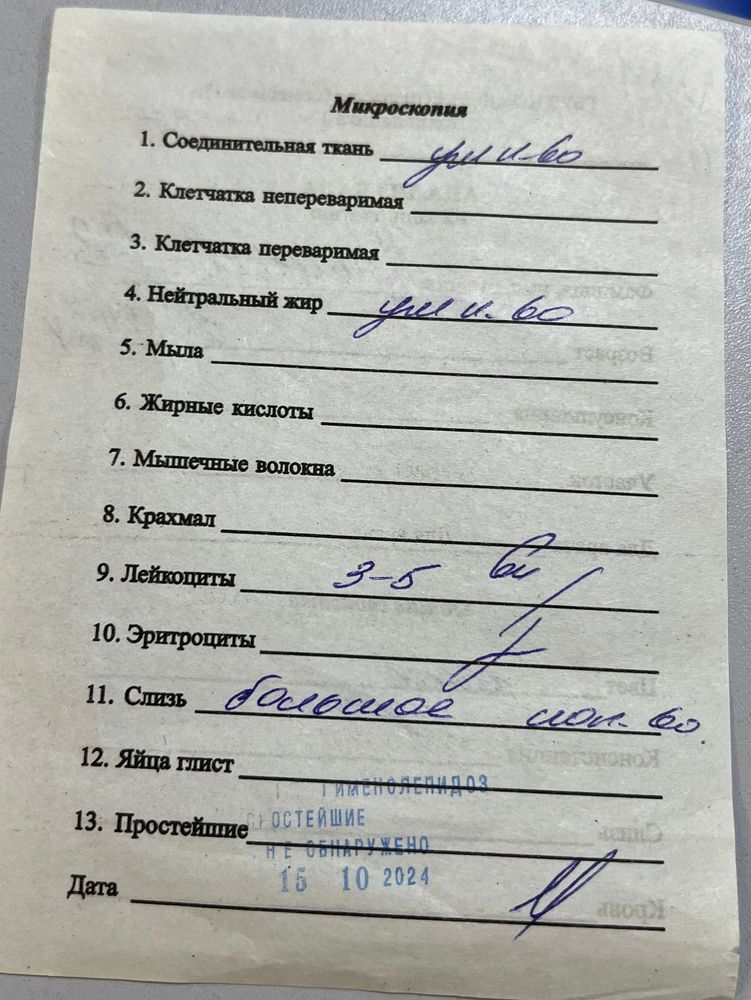 Микроскопия
1. Соединительная ткань ум к-во
2. Клетчатка непереваримая
3. Клетчатка переваримая
4. Нейтральный жир ум к-во
5. Мыла
6. Жирные кислоты
7. Мышечные волокна
8. Крахмал
9. Лейкоциты 3-5
10. Эритроциты
11. Слизь большое кол-во.
12. Яйца глист
ГИМЕНОЛЕПИДОЗ
13. Простейшие ПРОСТЕЙШИЕ
НЕ ОБНАРУЖЕНО
Дата 15 10 2024